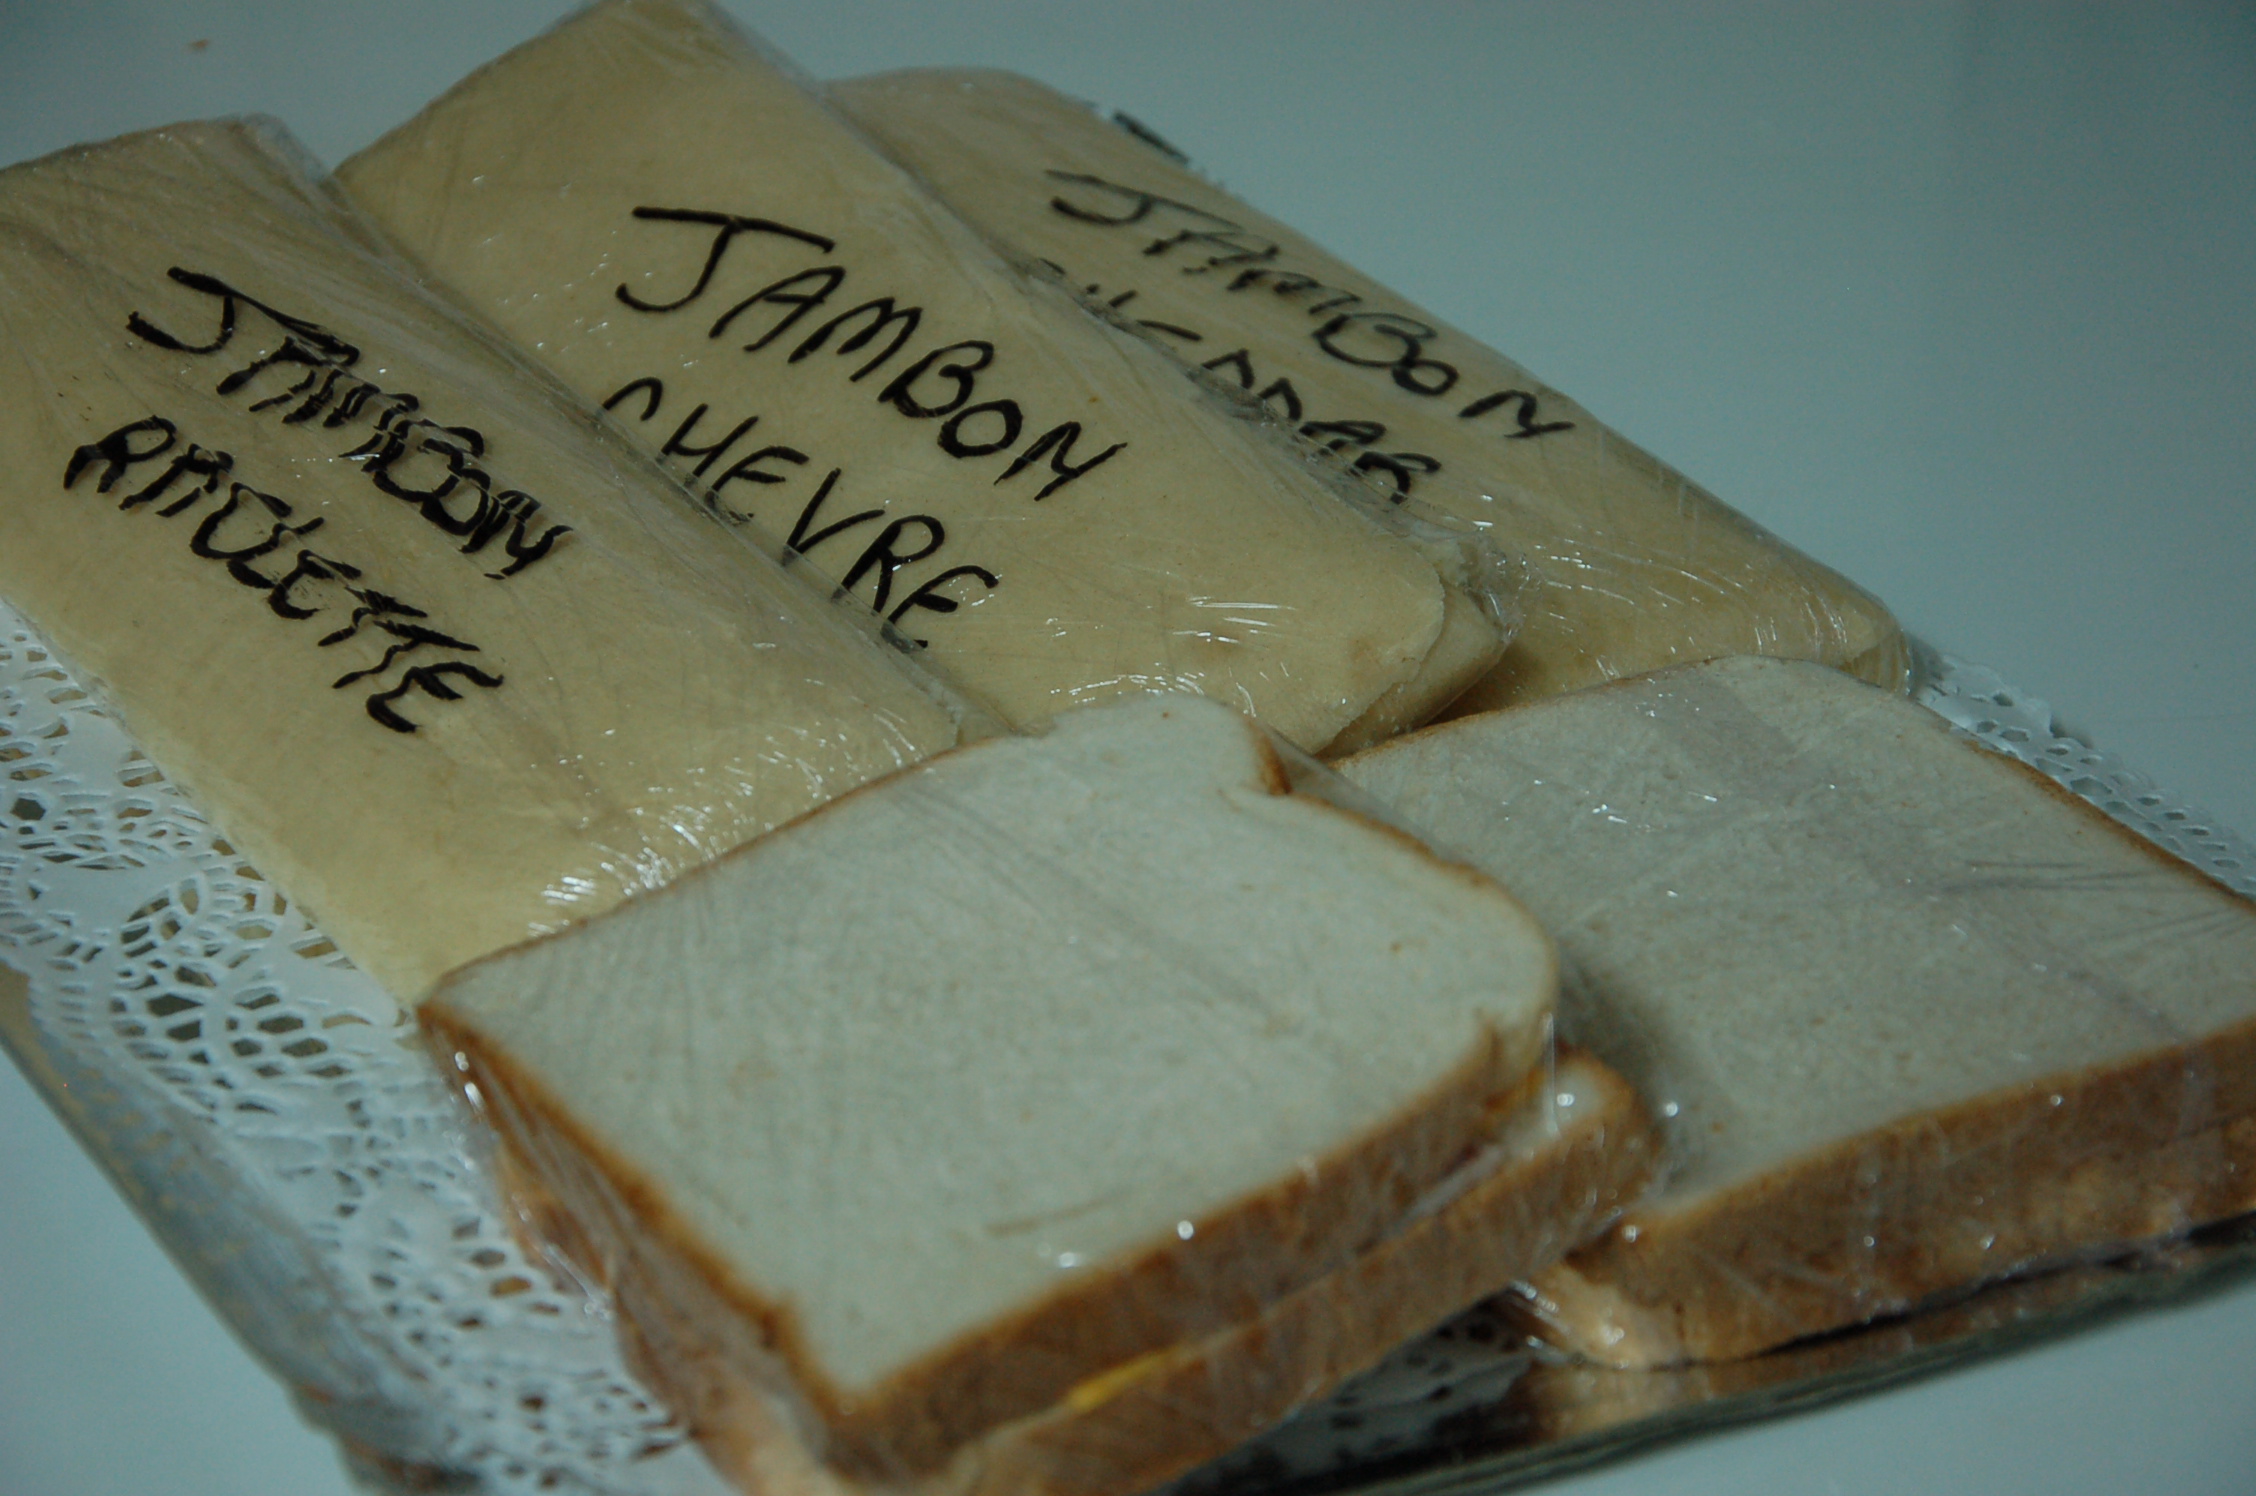 JAMBON
RACLETTE
JAMBON
CHEVRE
JAMBON
CHEDDAR